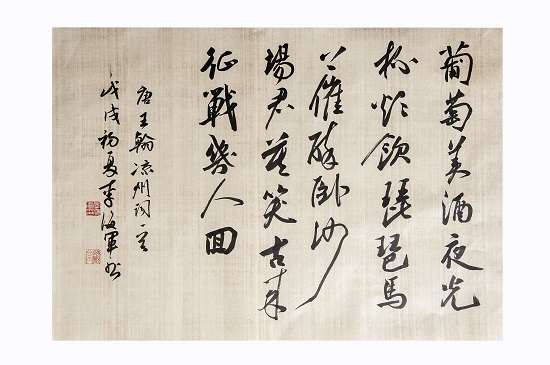 葡萄美酒夜光
杯欲飲琵琶馬
上催醉卧沙
場君莫笑古来
征戰幾人回
唐王翰凉州词一首
戊戌初夏李海軍书